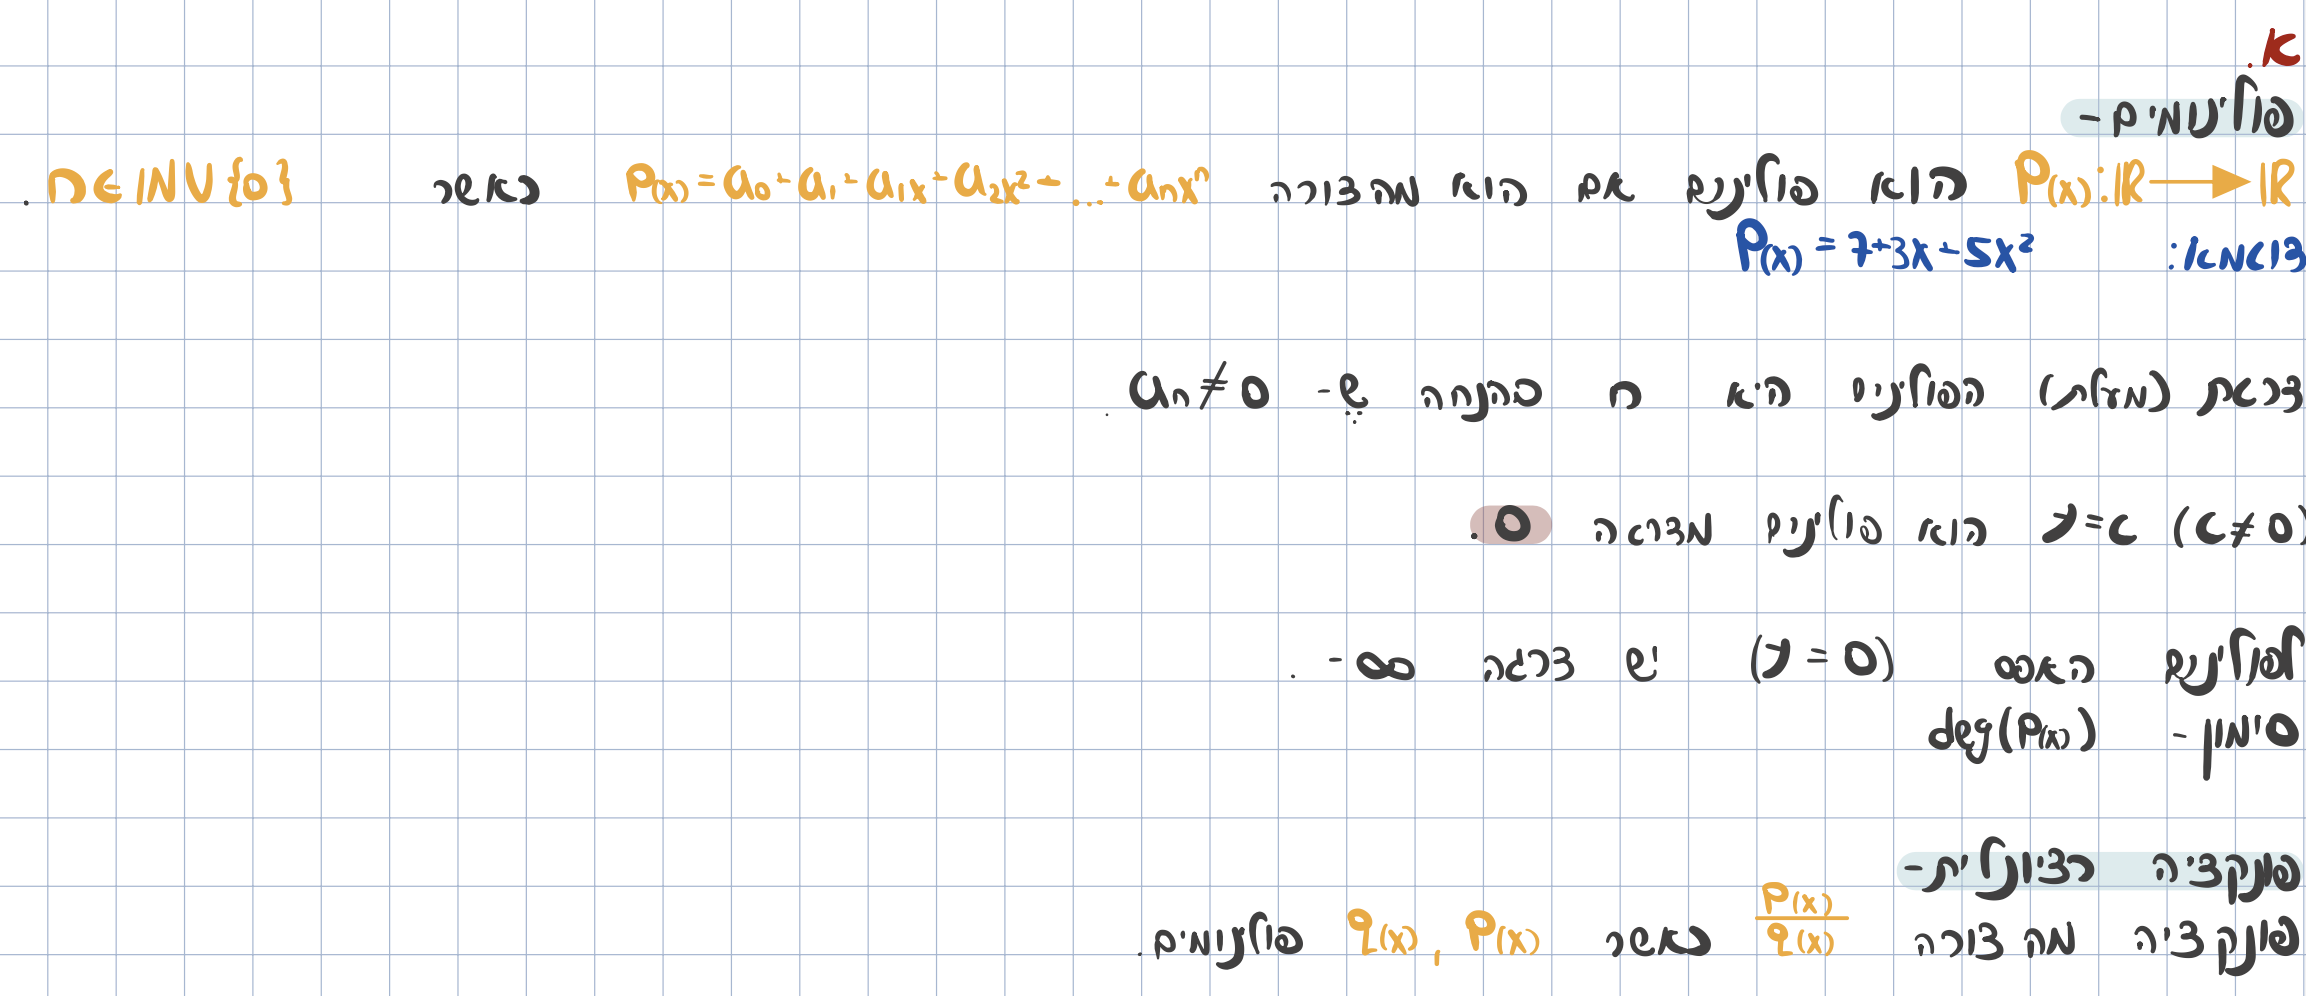 א.
פולינומים -
P(x): ℝ → ℝ הוא פולינום אם הוא מהצורה P(x) = a₀ + a₁ + a₁x + a₂x² + ... + aₙxⁿ כאשר n ∈ ℕ ∪ {0}.
דוגמא: P(x) = 7+3x+5x²
דרגת (מעלת) הפולינום היא n בהנחה ש- aₙ ≠ 0.
y = c (c ≠ 0) הוא פולינום מדרגה 0.
לפולינום האפס (y = 0) יש דרגה -∞.
סימון - deg(P(x))
פונקציה רציונלית -
פונקציה מהצורה P(x)/q(x) כאשר P(x), q(x) פולינומים.